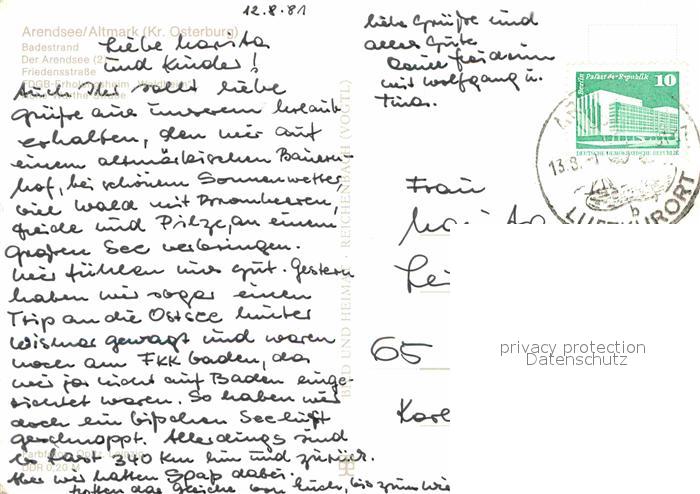 12.8.81
Arendsee/Altmark (Kr. Osterburg)
Badestrand
Der Arendsee (2)
Friedensstraße
FDGB-Erholungsheim "Waldheim"
Liebe Marita
und Kinder!
Auch Ihr sollt liebe
Grüße aus unserem Urlaub
erhalten, den wir auf
einem altmärkischen Bauern-
hof, bei schönem Sonnenwetter
viel Wald mit Brombeeren,
und Pilze, an einem
großen See verbringen.
Wir fühlen uns gut. Gestern
haben wir sogar einen
Trip an die Ostsee hinter
Wismar gewagt und waren
noch am FKK baden, da
wir ja nicht auf Baden einge-
richtet waren. So haben wir
doch ein bißchen Seeluft
geschnappt. Allerdings sind
es fast 340 km hin und zurück.
Aber wir hatten Spaß dabei.
hoffen das Gleiche von Euch, bis zum
DDR 0,20 M
BILD UND HEIMAT · REICHENBACH (VOGTL)
liebe Grüße und
alles Gute
Eure
mit Wolfgang u.
Tina.
Berlin, Palast der Republik
10
DEUTSCHE DEMOKRATISCHE REPUBLIK
13.8.
LUFTKURORT
Frau
65
privacy protection
Datenschutz